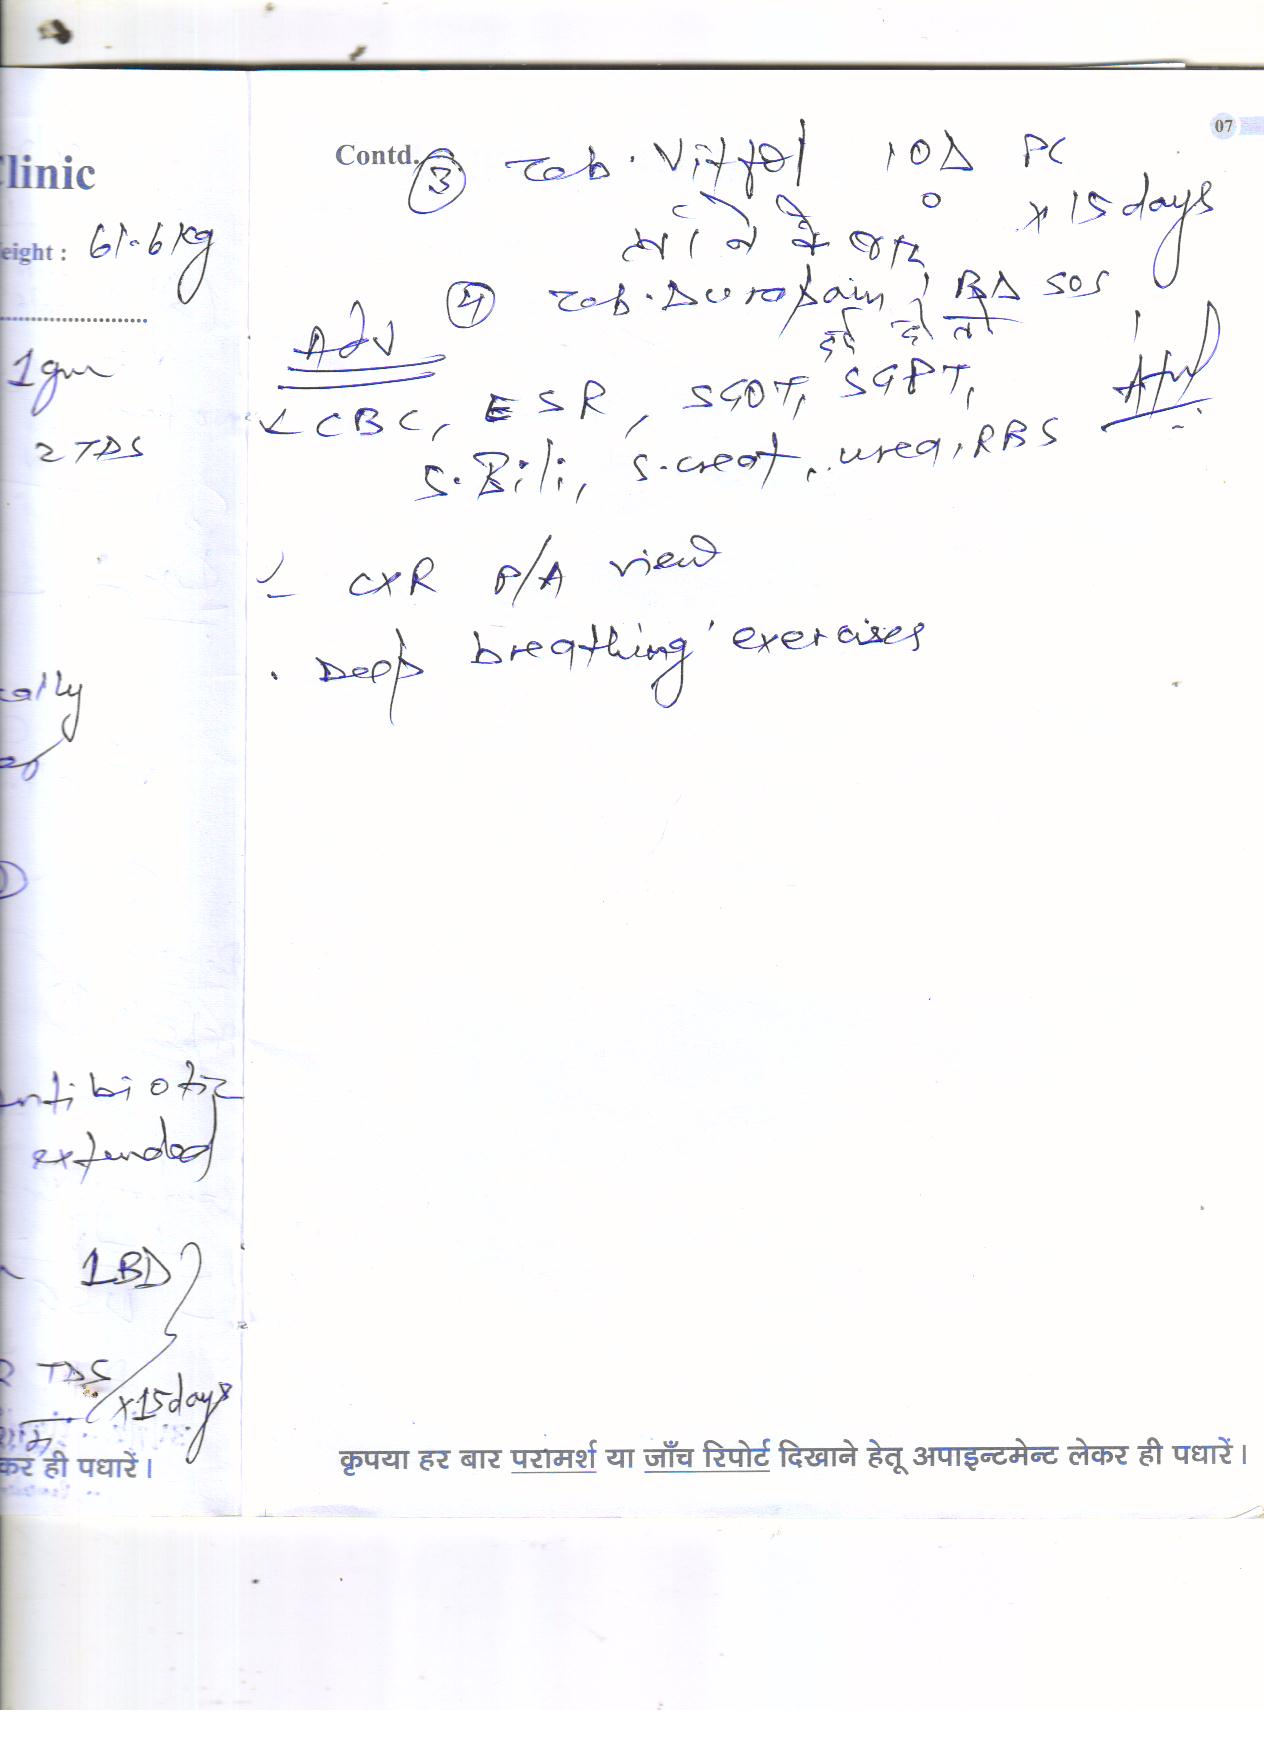 linic
eight : 61.6 kg
1gm
2 TDS
cally
ntibiotic
extended
1 BD
TDS
x 15 days
कर ही पधारें।
07
Contd.
③ Tab. Vitfol 1 OD PC
x 15 days
खाने के बाद
④ Tab. Duropain 1 BD SOS
दर्द हो तो
Adv
CBC, ESR, SGOT, SGPT,
S. Bili, S. creat, urea, RBS
CXR P/A view
. Deep breathing exercises
कृपया हर बार परामर्श या जाँच रिपोर्ट दिखाने हेतू अपाइन्टमेन्ट लेकर ही पधारें।